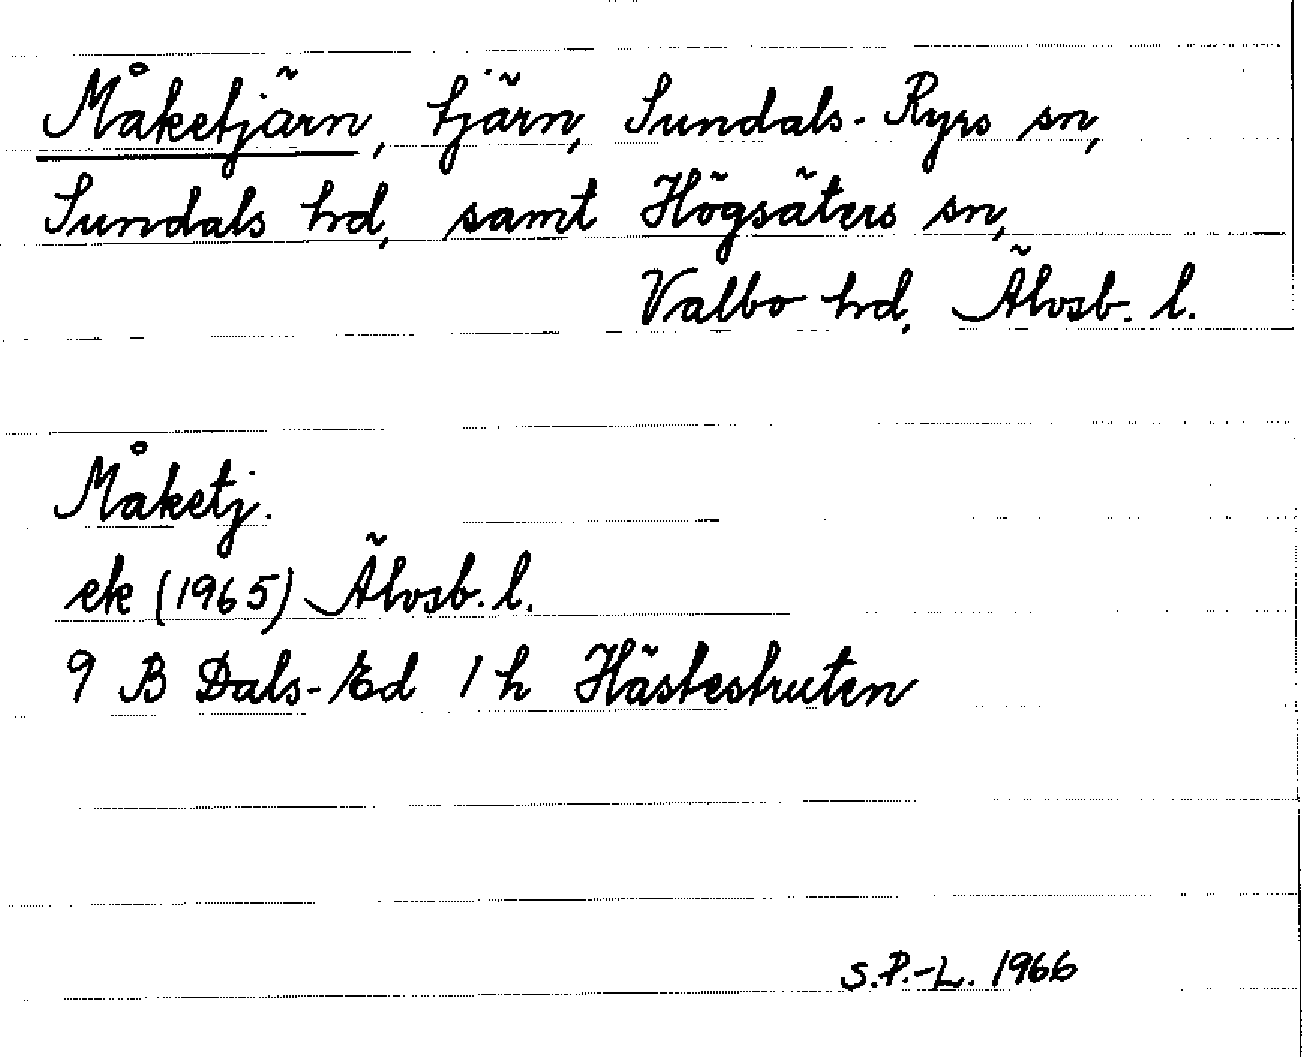 Måketjärn, tjärn, Sundals-Ryrs sn,
Sundals hd, samt Högsäters sn,
Valbo hd, Älvsb. l.
Måketj.
ek (1965) Älvsb. l.
9 B Dals-Ed 1 h Hästestruten
S.P.-L. 1966